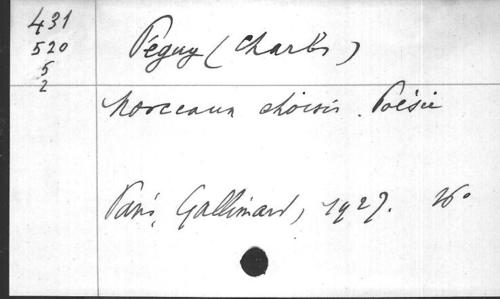 431
520
5
2
Péguy (Charles)
Morceaux choisis. Poésie
Paris, Gallimard, 1927. 16°